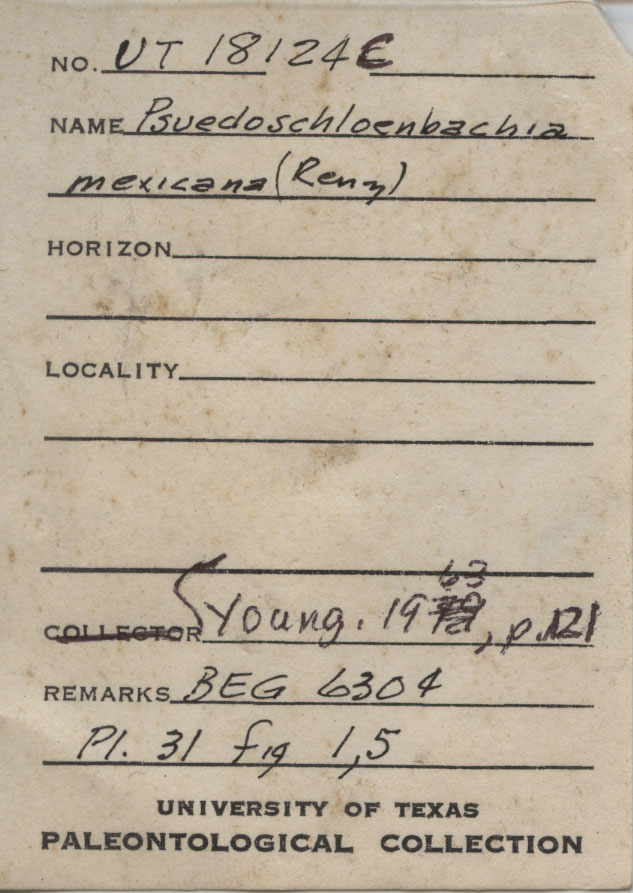 NO. UT 18124E
NAME Psuedoschloenbachia
mexicana (Renz)
HORIZON
LOCALITY
COLLECTOR Young. 1963, p.121
REMARKS BEG 6304
Pl. 31 fig 1,5
UNIVERSITY OF TEXAS
PALEONTOLOGICAL COLLECTION